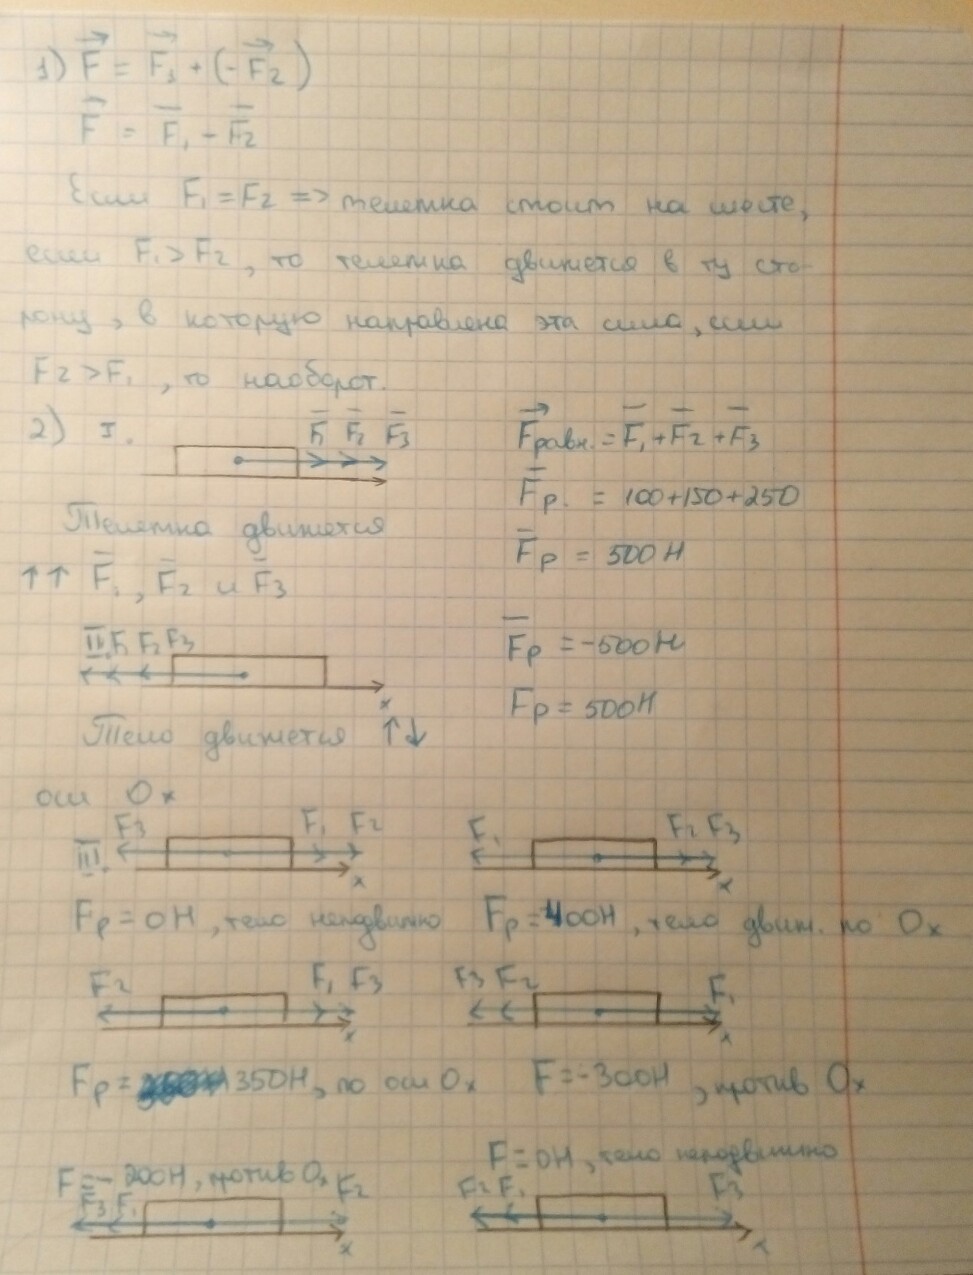 1) F = F₁ + (-F₂)
F = F₁ - F₂
Если F₁ = F₂ => телетка стоит на месте,
если F₁ > F₂, то телетка движется в ту сто-
рону, в которую направлена эта сила, если
F₂ > F₁, то наоборот.
2) I. F₁ F₂ F₃
Fравн. = F₁ + F₂ + F₃
Fр. = 100+150+250
Fр = 500Н
Телетка движется
↑↑ F₁, F₂ и F₃
II. F₁ F₂ F₃
x
Fр = -500Н
Fр = 500Н
Тело движется ↑↓
оси Ox
III. F₃ F₁ F₂
x
F₁ F₂ F₃
x
Fр = 0Н, тело неподвижно
Fр = 400Н, тело движ. по Ox
F₂ F₁ F₃
x
F₃ F₂ F₁
x
Fр = 350Н, по оси Ox
F = -300Н, против Ox
F = -200Н, против Ox
F₃ F₁ F₂
x
F = 0Н, тело неподвижно
F₂ F₁ F₃
x